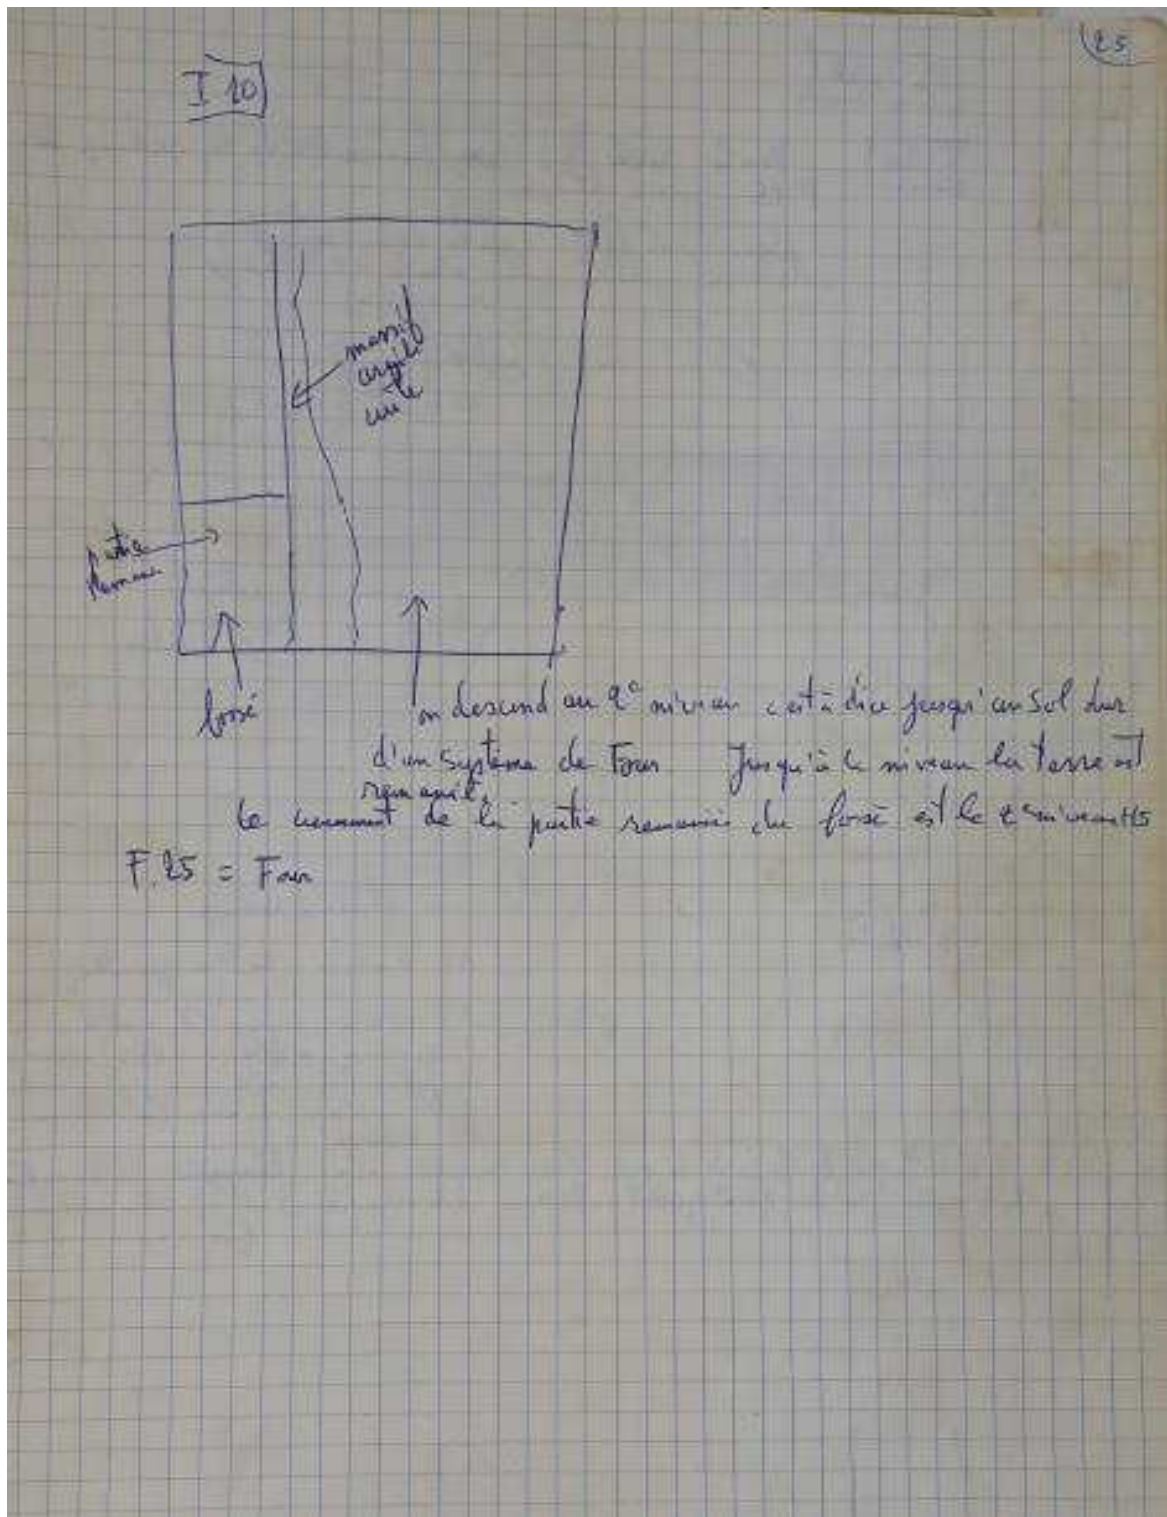 25
I 10
massif
argile
cuite
partie
remaniée
fossé
on descend au 2° niveau c'est à dire jusqu'au sol dur
d'un système de Four Jusqu'à ce niveau la terre est
remaniée.
Le creusement de la partie remaniée du fossé est le 2e niveau
F.25 = Four